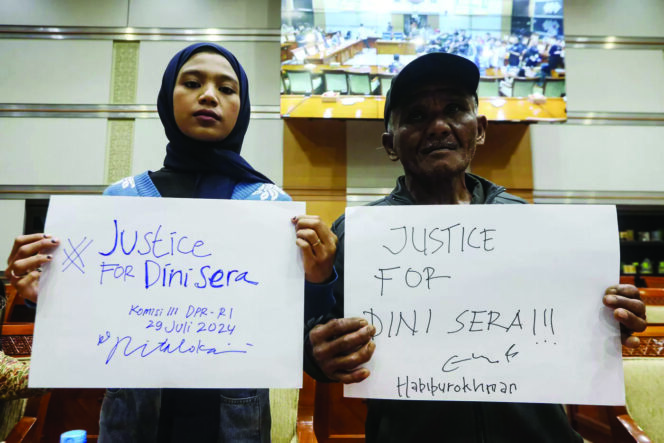 Justice
FOR Dini sera
Komisi III DPR-RI
29 Juli 2024
JUSTICE
FOR
DINI SERA!!!
Habiburokhman